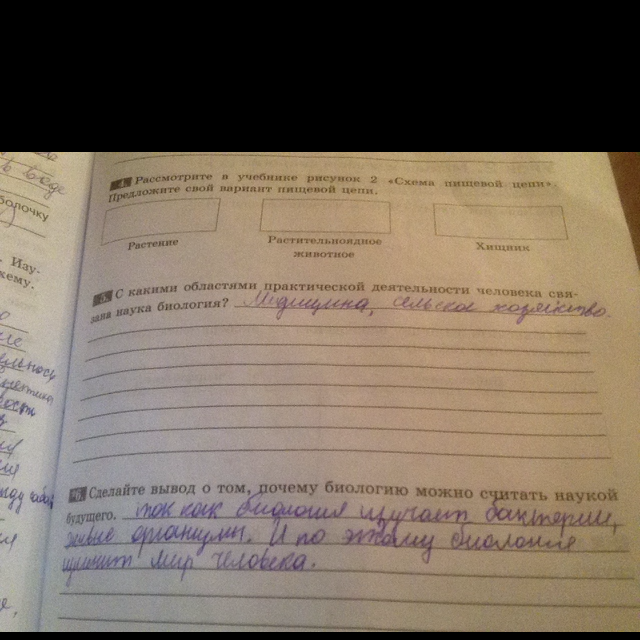 в воде
болочку
Изу-
хему.
4. Рассмотрите в учебнике рисунок 2 «Схема пищевой цепи».
Предложите свой вариант пищевой цепи.
Растение
Растительноядное
животное
Хищник
5. С какими областями практической деятельности человека свя-
зана наука биология? Медицина, сельское хозяйство.
6. Сделайте вывод о том, почему биологию можно считать наукой
будущего. так как биология изучает бактерии,
живые организмы. И по этому биология
изучает мир человека.